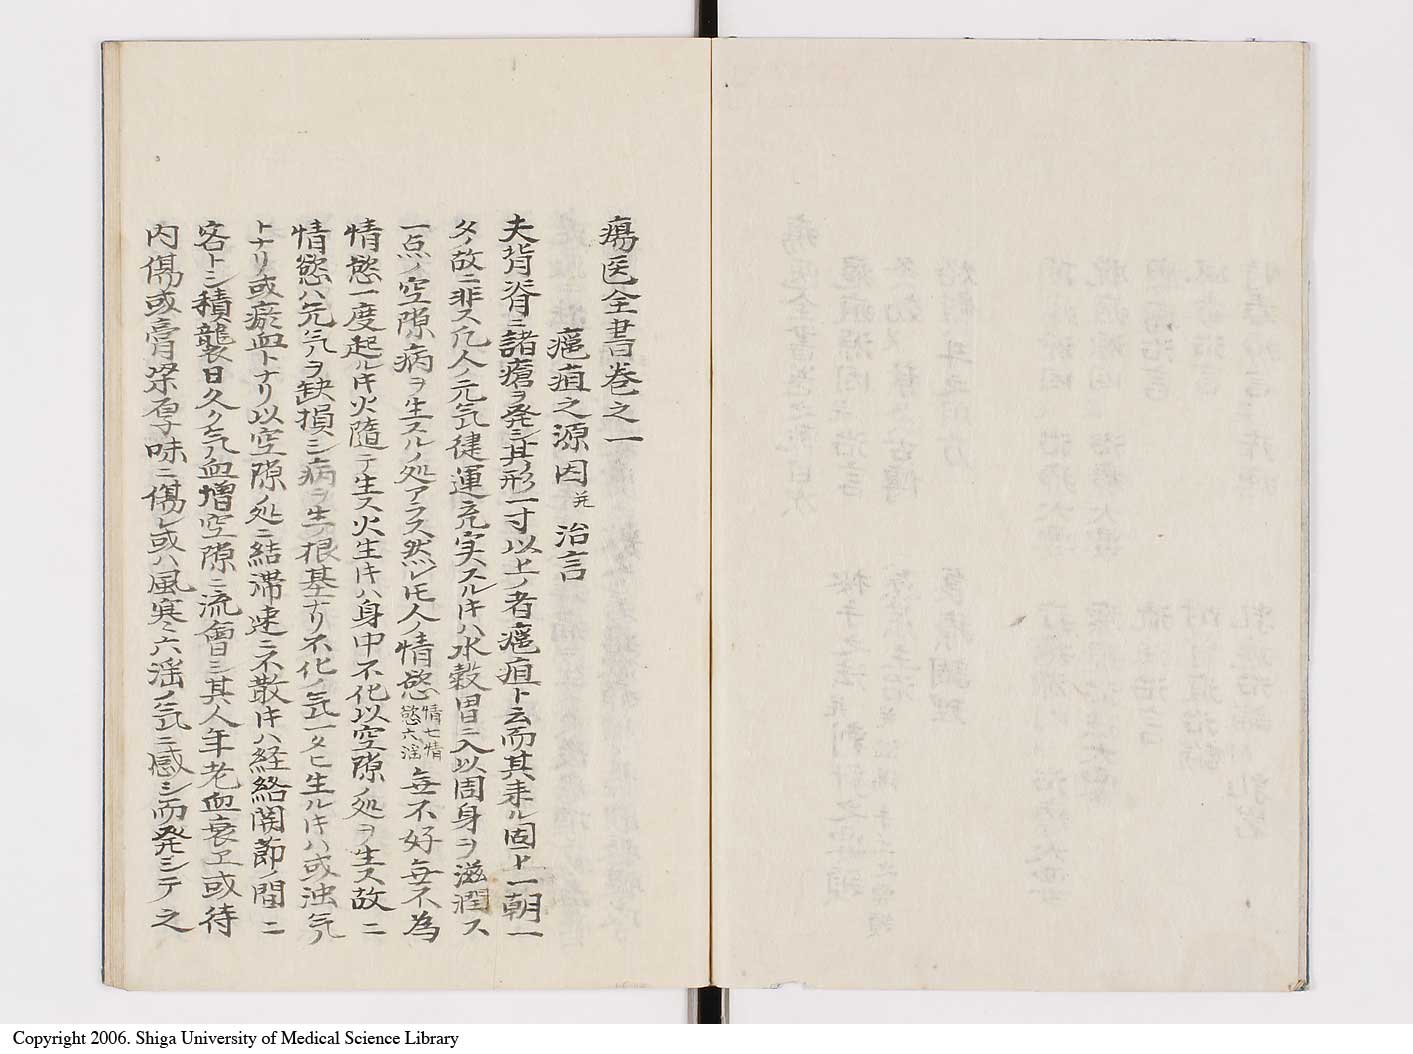 瘍医全書巻之一
瘟疽之源因 并 治言
夫背脊ニ諸瘡ヲ発シ其形一寸以上ノ者瘟疽ト云而其来ル固ヨリ一朝一
夕ノ故ニ非ス凡人ノ元気健運充実スルトキハ水穀胃ニ入以周身ヲ滋潤ス
一点ノ空隙病ヲ生スルノ処アラス然レトモ人ノ情慾 情七情 慾六淫 無不好無不為
情慾一度起ルトキ火随テ生ス火生トキハ身中不化以空隙ノ処ヲ生ス故ニ
情慾ハ元気ヲ缺損シ病ヲ生ノ根基ナリ不化ノ気一タヒ生ルトキハ或浊気
トナリ或瘀血トナリ以空隙ノ処ニ結滞速ニ不散トキハ経絡関節ノ間ニ
客トシ積襲日久ク気血増空隙ニ流會シ其人年老血衰ヱ或待
内傷或膏粱厚味ニ傷レ或ハ風寒六淫ノ気ニ感シ而発シテ之
Copyright 2006. Shiga University of Medical Science Library